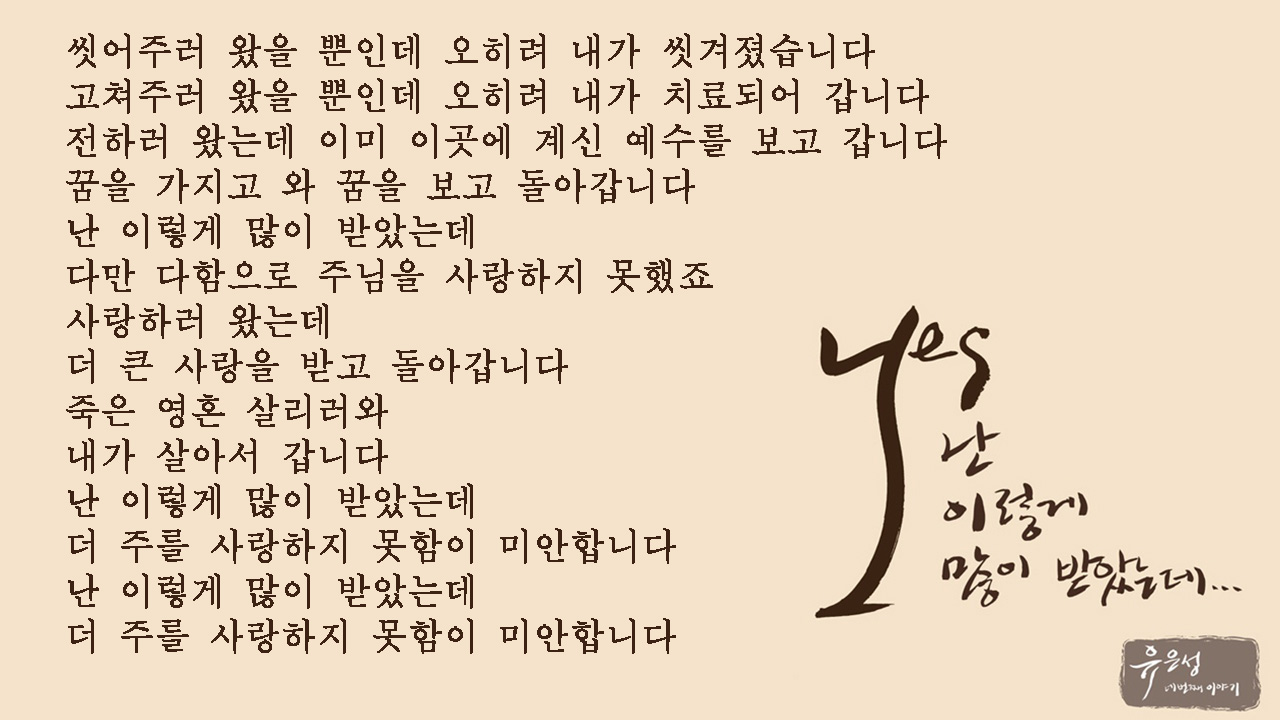 씻어주러 왔을 뿐인데 오히려 내가 씻겨졌습니다
고쳐주러 왔을 뿐인데 오히려 내가 치료되어 갑니다
전하러 왔는데 이미 이곳에 계신 예수를 보고 갑니다
꿈을 가지고 와 꿈을 보고 돌아갑니다
난 이렇게 많이 받았는데
다만 다함으로 주님을 사랑하지 못했죠
사랑하러 왔는데
더 큰 사랑을 받고 돌아갑니다
죽은 영혼 살리러와
내가 살아서 갑니다
난 이렇게 많이 받았는데
더 주를 사랑하지 못함이 미안합니다
난 이렇게 많이 받았는데
더 주를 사랑하지 못함이 미안합니다
yes
난
이렇게
많이 받았는데...
유은성
네번째 이야기